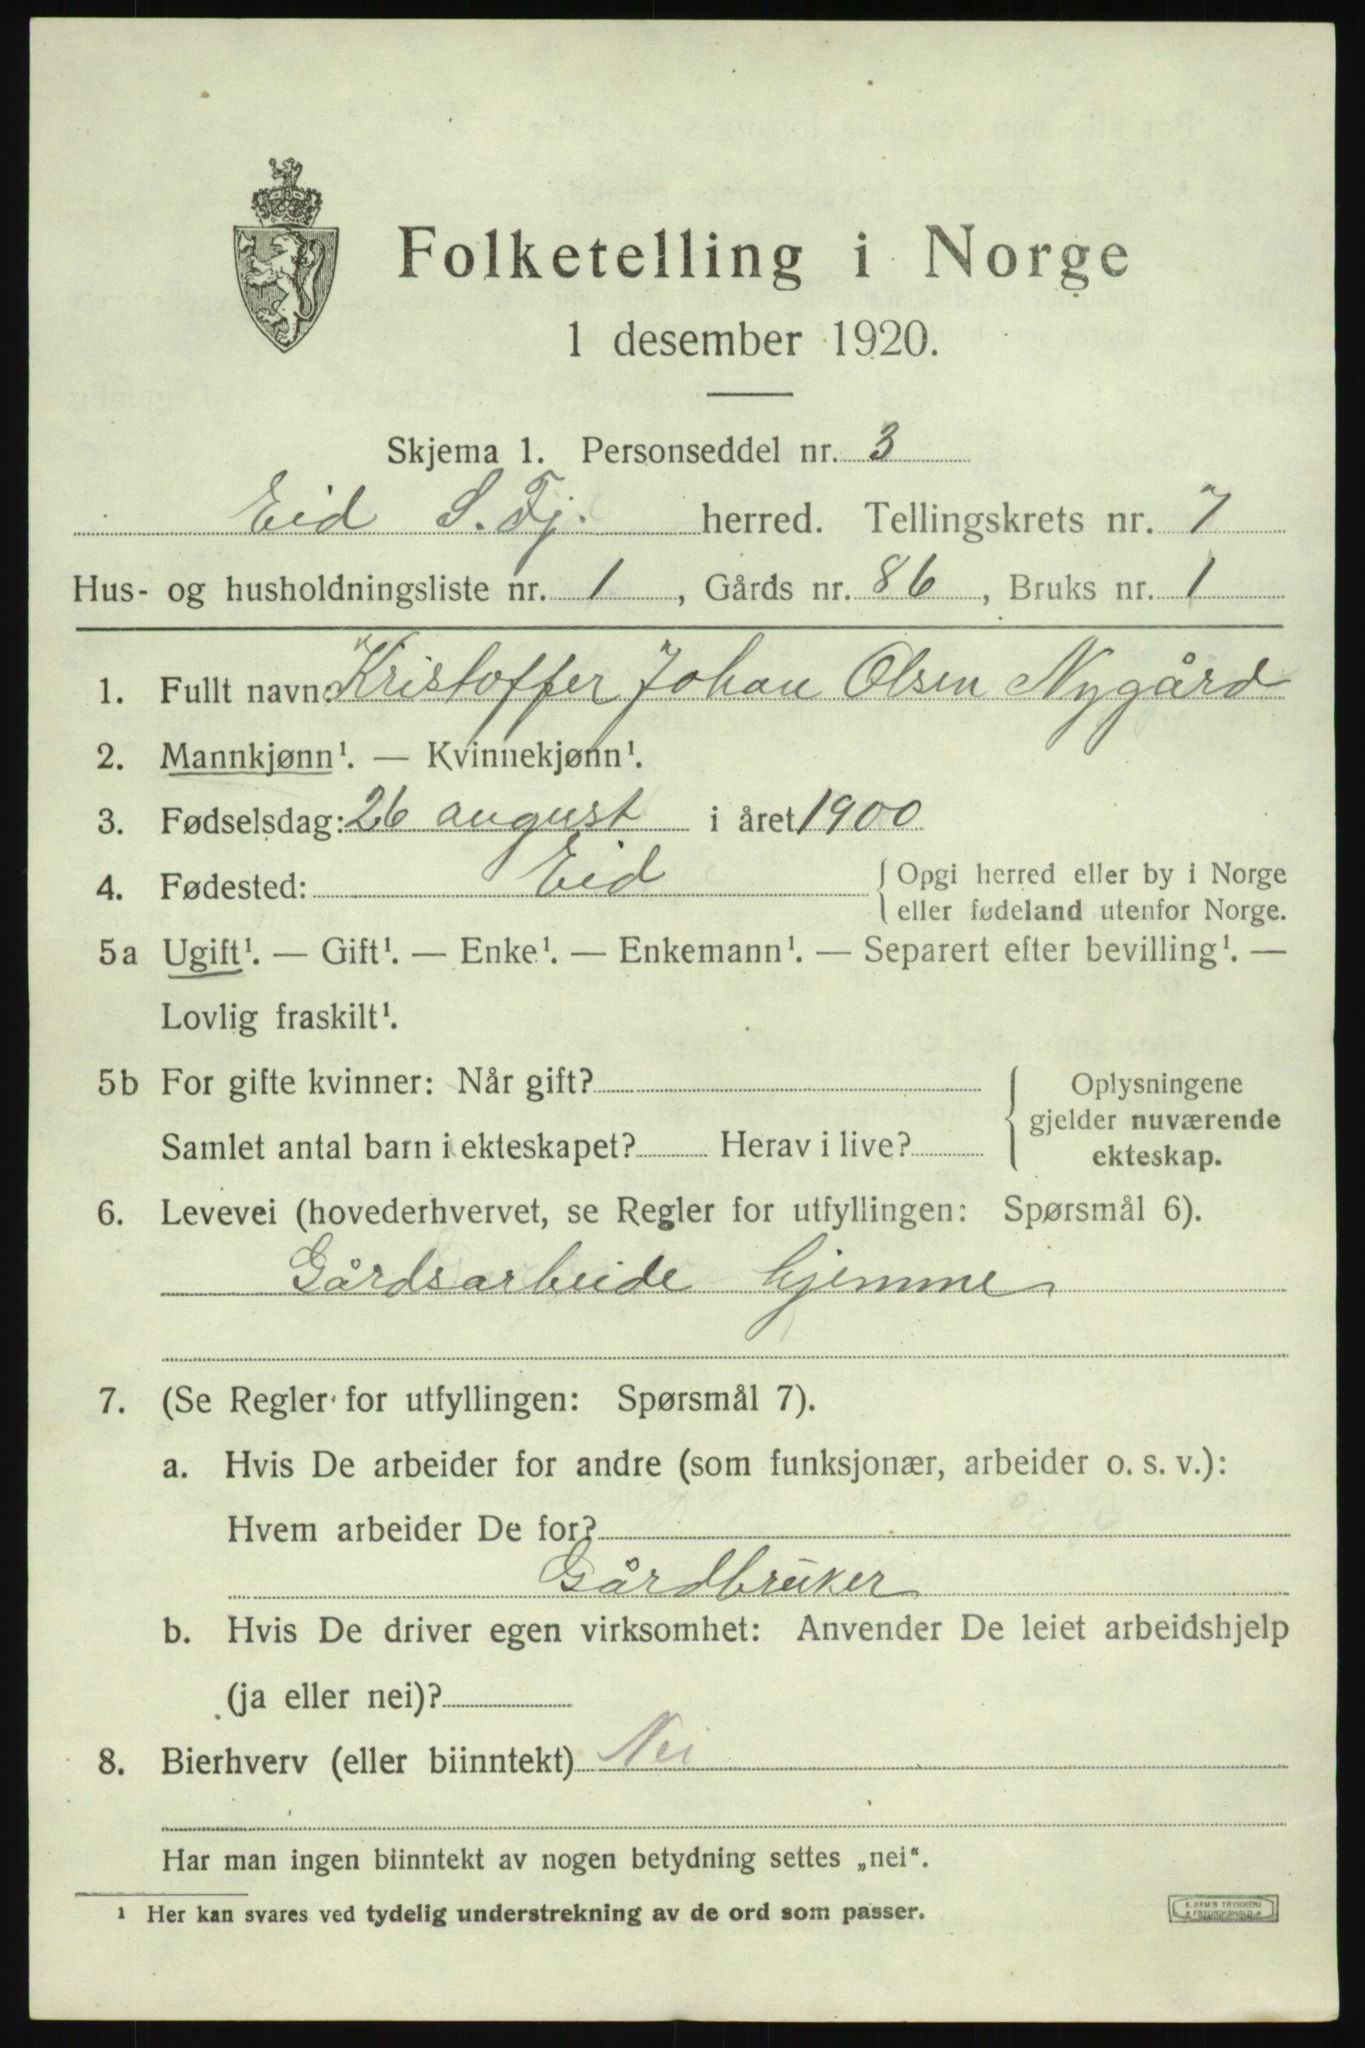 Folketelling i Norge
1 desember 1920.
Skjema 1. Personseddel nr. 3
Eid S. Fj. herred. Tellingskrets nr. 7
Hus- og husholdningsliste nr. 1, Gårds nr. 86, Bruks nr. 1
1. Fullt navn: Kristoffer Johan Olsen Nygård
2. Mannkjønn¹. — Kvinnekjønn¹.
3. Fødselsdag: 26 august i året 1900
4. Fødested: Eid { Opgi herred eller by i Norge
eller fødeland utenfor Norge.
5a Ugift¹. — Gift¹. — Enke¹. — Enkemann¹. — Separert efter bevilling¹. —
Lovlig fraskilt¹.
5b For gifte kvinner: Når gift? { Oplysningene
gjelder nuværende
Samlet antal barn i ekteskapet? Herav i live? ekteskap.
6. Levevei (hovederhvervet, se Regler for utfyllingen: Spørsmål 6).
Gårdsarbeide hjemme
7. (Se Regler for utfyllingen: Spørsmål 7).
a. Hvis De arbeider for andre (som funksjonær, arbeider o. s. v.):
Hvem arbeider De for?
Gårdbruker
b. Hvis De driver egen virksomhet: Anvender De leiet arbeidshjelp
(ja eller nei)?
8. Bierhverv (eller biinntekt) Nei
Har man ingen biinntekt av nogen betydning settes „nei".
¹ Her kan svares ved tydelig understrekning av de ord som passer.
E. SEM'S TRYKKERI
FREDRIKSHALD